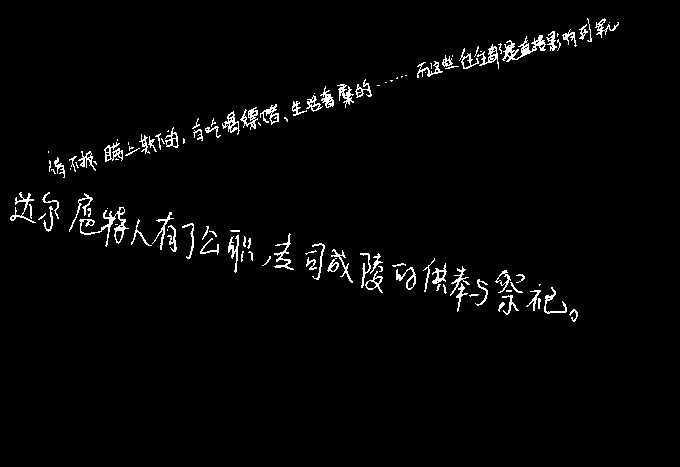 情不报、瞒上欺下的,有吃喝嫖赌、生活奢靡的……而这些往往都是直接影响到军心
达尔扈特人有了公职,专司成陵的供奉与祭祀。